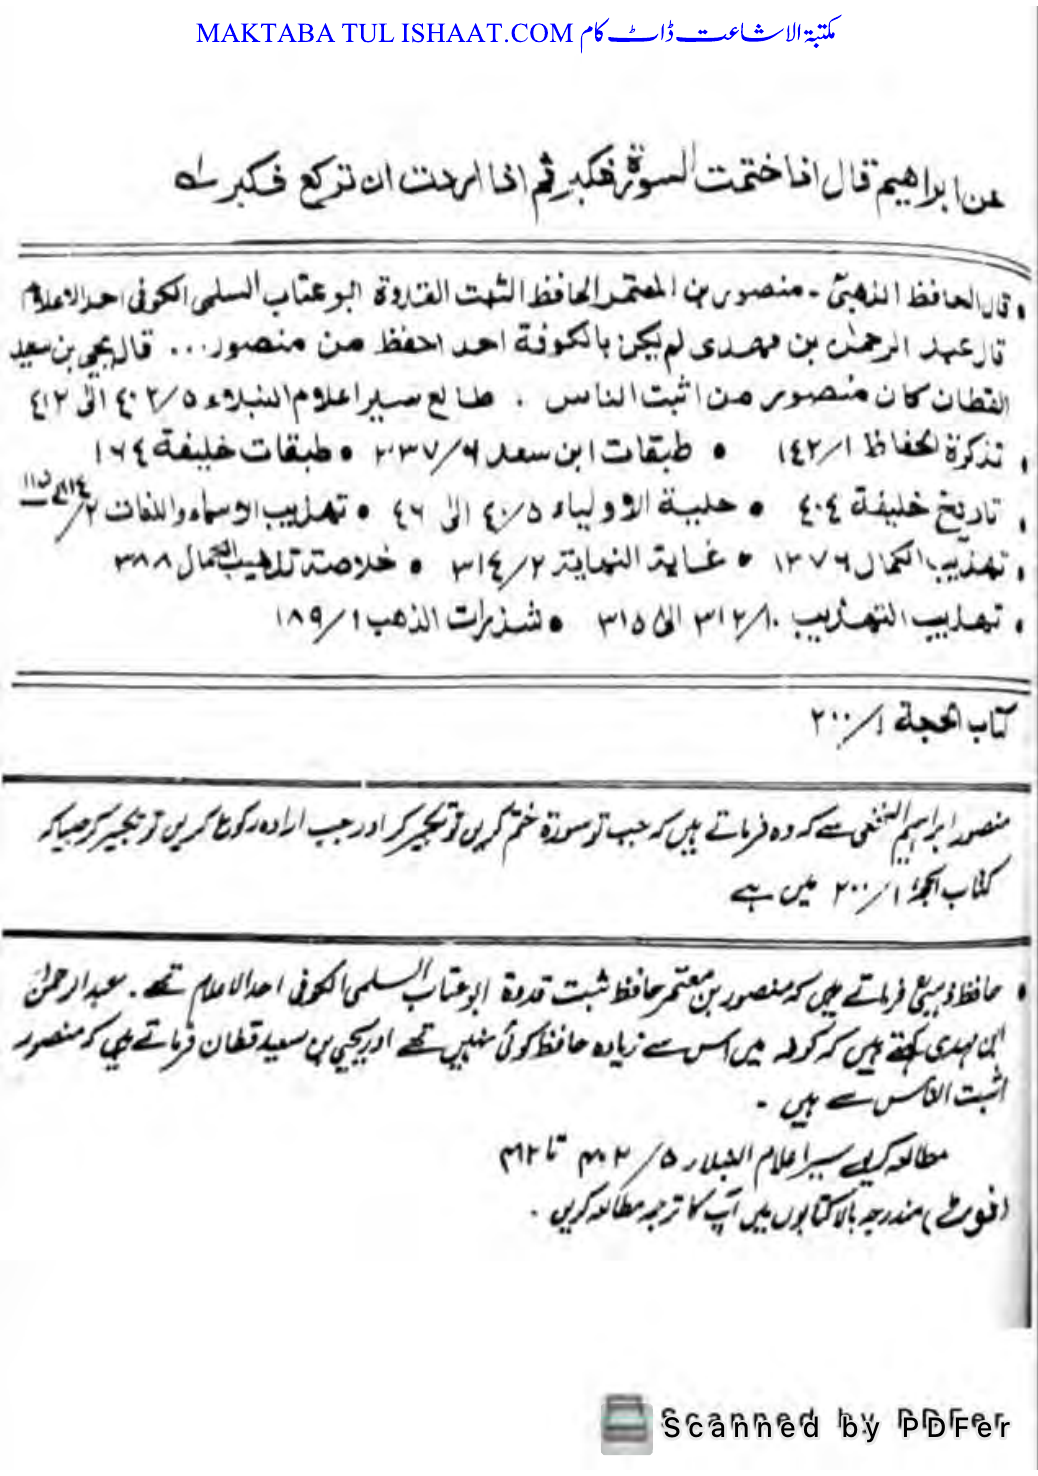 MAKTABA TUL ISHAAT.COM مکتبۃ الاشاعت ڈاٹ کام
عن ابراهيم قال اذا ختمت السورة فكبر ثم اذا اردت ان تركع فكبر له
• قال الحافظ الذهبیؒ ـ منصور بن المعتمر الحافظ الثبت القدوة ابو عتاب السلمی الكوفی احد الاعلام
قال عبد الرحمٰن بن مهدی لم يكن بالكوفة احد احفظ من منصور ... قال یحیی بن سعید
القطان كان منصور من اثبت الناس . طالع سير اعلام النبلاء ٤٠٢/٥ الی ٤١٢
• تذكرة الحفاظ ١٤٢/١ • طبقات ابن سعد ٣٣٧/٦ • طبقات خليفة ١٦٤
• تاريخ خليفة ٤٠٤ • حلية الاولياء ٤٠/٥ الی ٤٦ • تهذيب الاسماء واللغات ٢/١١٤ الی ١١٥
• تهذيب الكمال ١٣٧٦ • غاية النهاية ٣١٤/٢ • خلاصة تذهيب الكمال ٣٨٨
• تهذيب التهذيب ٣١٢/١٠ الی ٣١٥ • شذرات الذهب ١٨٩/١
كتاب الحجة ٢٠٠/١
منصور ابراہیم النخعی سے کہ وہ فرماتے ہیں کہ جب تو سورة ختم کریں تو تکبیر کر اور جب ارادہ رکوع کریں تو تکبیر کر جیسا کہ
کتاب الحجۃ ٢٠٠/١ میں ہے
• حافظ ذہبیؒ فرماتے ہیں کہ منصور بن معتمر حافظ ثبت قدوة ابو عتاب السلمی الکوفی احد الاعلام تھے ۔ عبد الرحمٰن
ابن مہدی کہتے ہیں کہ کوفہ میں اس سے زیادہ حافظ کوئی نہیں تھے اور یحیٰی بن سعید قطان فرماتے ہیں کہ منصور
اثبت الناس سے ہیں ۔
مطالعہ کریں سیر اعلام النبلاء ۵/۴۰۲ تا ۴۱۲
(نوٹ) مندرجہ بالا کتابوں میں آپ کا ترجمہ مطالعہ کریں ۔
Scanned by PDFer